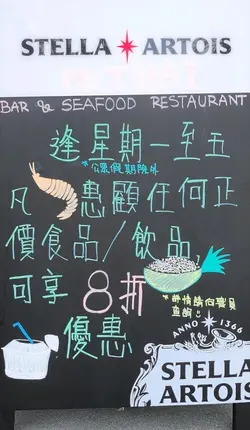 STELLA ARTOIS
BAR & SEAFOOD RESTAURANT
逢星期一至五
*公眾假期除外
凡惠顧任何正
價食品/飲品
可享8折
*詳情請向職員
查詢
優惠
ANNO 1366
STELLA
ARTOIS